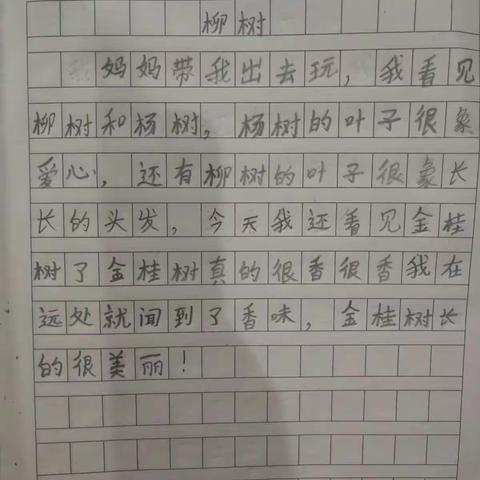 柳树
妈妈带我出去玩，我看见
柳树和杨树，杨树的叶子很象
爱心，还有柳树的叶子很象长
长的头发，今天我还看见金桂
树了金桂树真的很香很香我在
远处就闻到了香味，金桂树长
的很美丽！